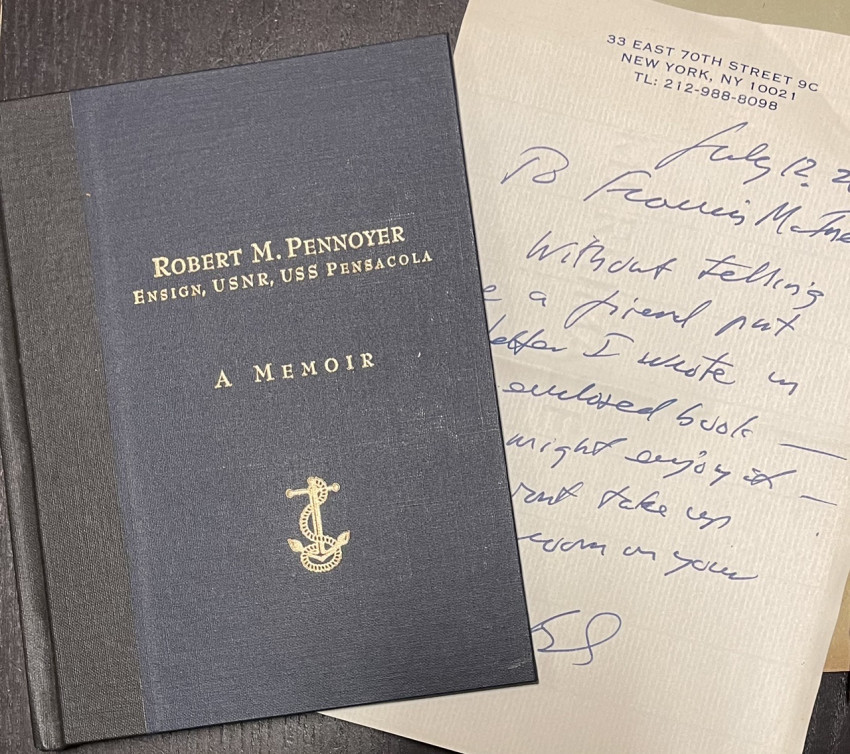 ROBERT M. PENNOYER
ENSIGN, USNR, USS PENSACOLA
A MEMOIR
33 EAST 70TH STREET 9C
NEW YORK, NY 10021
TL: 212-988-8098
July 12, 2
To Francis
Without telling
e a friend put
letter I wrote in
enclosed book —
might enjoy it —
take up
room on your